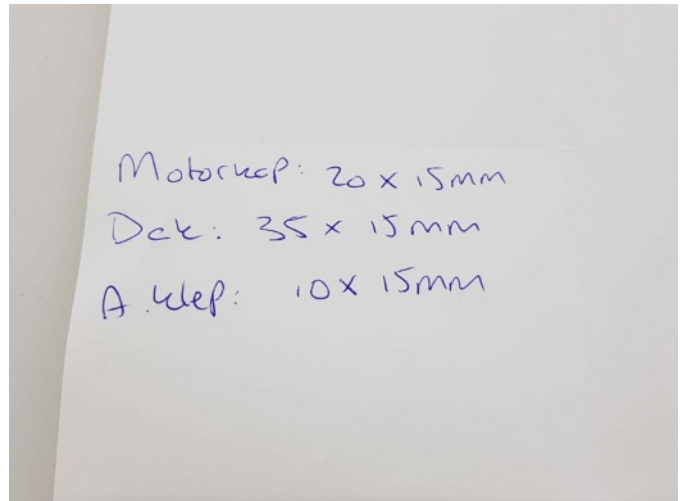 Motorkap: 20 x 15mm
Dak: 35 x 15mm
A.klep: 10 x 15mm